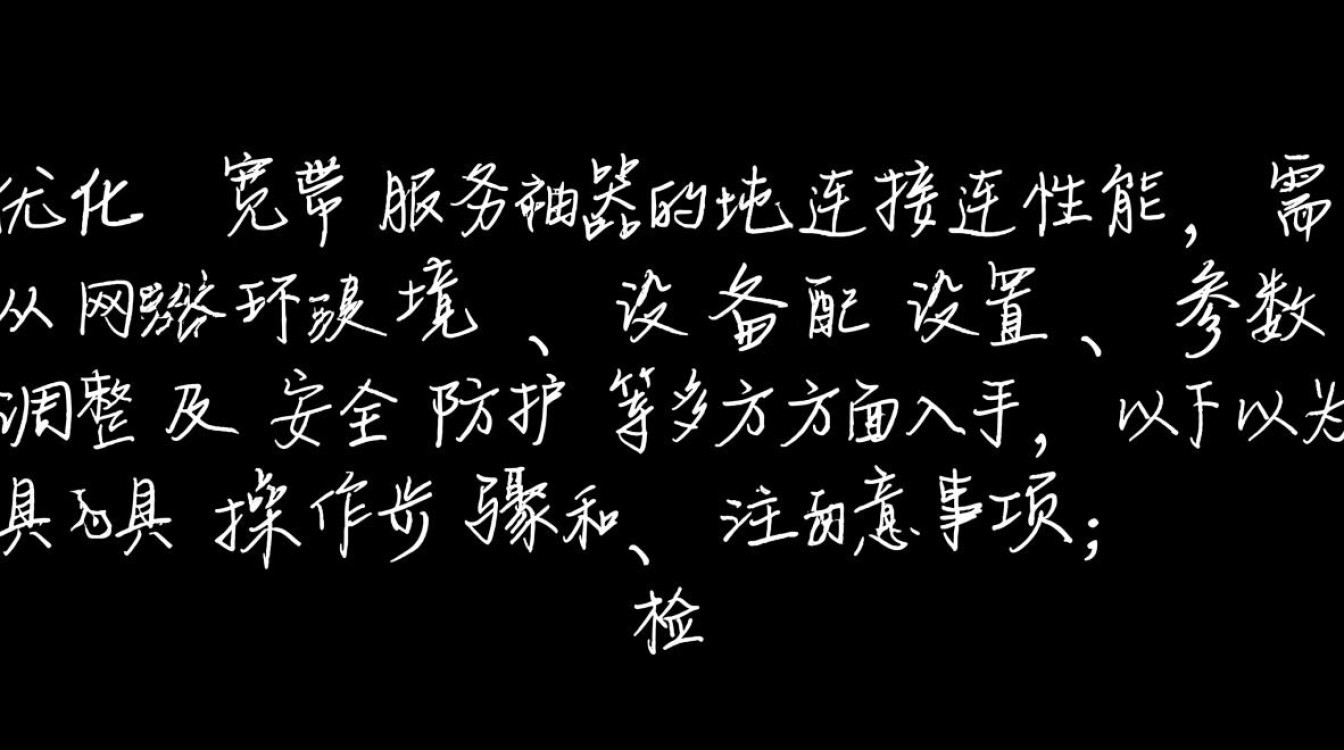 优化 宽带 服务袖器的地连接连性能，需
从网络环境、设备配 设置、参数
调整及 安全 防护 等多方方面入手，以下以为
具具 操作步 骤和、注意事项；
检